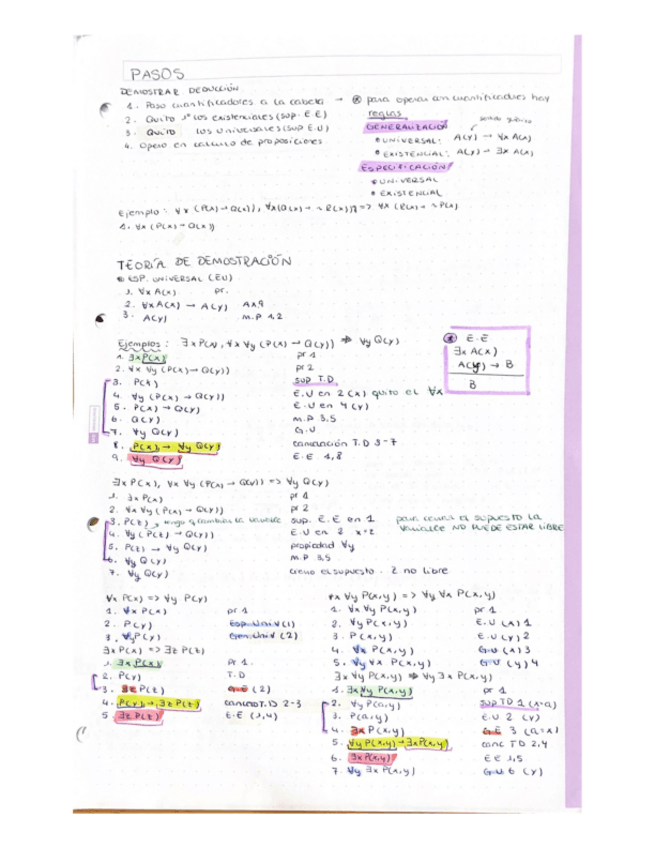 PASOS
DEMOSTRAR DEDUCCIÓN
1. Paso cuantificadores a la cabeza → ⊛ para operar con cuantificadores hay reglas
2. Quito 1º los existenciales (sup. E.E)
3. Quito los universales (sup E.U)
4. Opero en cálculo de proposiciones
GENERALIZACIÓN
UNIVERSAL: A(y) → ∀x A(x)
EXISTENCIAL: A(y) → ∃x A(x)
ESPECIFICACIÓN
UNIVERSAL
EXISTENCIAL
Ejemplo: ∀x (P(x) → Q(x)), ∀x(Q(x) → ¬R(x)) => ∀x (R(x) → ¬P(x)
1. ∀x (P(x) → Q(x))
TEORÍA DE DEMOSTRACIÓN
ESP. UNIVERSAL (EU)
1. ∀x A(x) pr.
2. ∀x A(x) → A(y) Ax9
3. A(y) M.P 1,2
Ejemplos: ∃x P(x), ∀x ∀y (P(x) → Q(y)) => ∀y Q(y)
1. ∃x P(x) pr 1
2. ∀x ∀y (P(x) → Q(y)) pr 2
3. P(x) sup T.D
4. ∀y (P(x) → Q(y)) E.U en 2 (x) quito el ∀x
5. P(x) → Q(y) E.U en 4 (y)
6. Q(y) M.P 3,5
7. ∀y Q(y) G.U
8. P(x) → ∀y Q(y) cancelación T.D 3-7
9. ∀y Q(y) E.E 1,8
⊛ E.E
∃x A(x)
A(y) → B
B
∃x P(x), ∀x ∀y (P(x) → Q(y)) => ∀y Q(y)
1. ∃x P(x) pr 1
2. ∀x ∀y (P(x) → Q(y)) pr 2
3. P(z) → tengo q cambiar la variable sup. E.E en 1 para cerrar el supuesto la variable NO PUEDE ESTAR LIBRE
4. ∀y (P(z) → Q(y)) E.U en 2 x=z
5. P(z) → ∀y Q(y) propiedad ∀y
6. ∀y Q(y) M.P 3,5
7. ∀y Q(y) cierro el supuesto - z no libre
∀x P(x) => ∀y P(y)
1. ∀x P(x) pr 1
2. P(y) Esp. Univ (1)
3. ∀y P(y) Gen. Univ (2)
∃x P(x) => ∃z P(z)
1. ∃x P(x) pr 1.
2. P(y) T.D
3. ∃z P(z) G.E (2)
4. P(y) → ∃z P(z) cancelo T.D 2-3
5. ∃z P(z) E.E (1,4)
∀x ∀y P(x,y) => ∀y ∀x P(x,y)
1. ∀x ∀y P(x,y) pr 1
2. ∀y P(x,y) E.U (x) 1
3. P(x,y) E.U (y) 2
4. ∀x P(x,y) G.U (x) 3
5. ∀y ∀x P(x,y) G.U (y) 4
∃x ∀y P(x,y) => ∀y ∃x P(x,y)
1. ∃x ∀y P(x,y) pr 1
2. ∀y P(a,y) sup TD 1 (x=a)
3. P(a,y) E.U 2 (y)
4. ∃x P(x,y) G.E 3 (a=x)
5. ∀y P(a,y) → ∃x P(x,y) canc TD 2,4
6. ∃x P(x,y) E.E 1,5
7. ∀y ∃x P(x,y) G.U 6 (y)